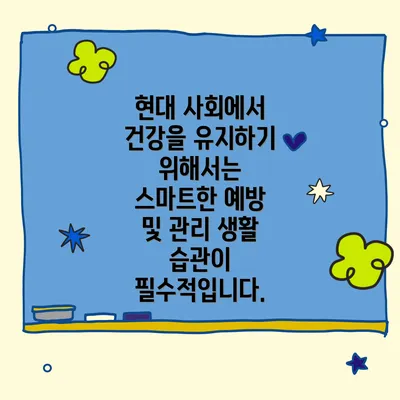 현대 사회에서
건강을 유지하기
위해서는
스마트한 예방
및 관리 생활
습관이
필수적입니다.